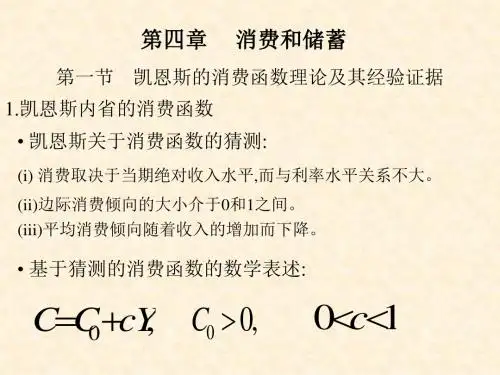 第四章 消费和储蓄
第一节 凯恩斯的消费函数理论及其经验证据
1.凯恩斯内省的消费函数
• 凯恩斯关于消费函数的猜测:
(i) 消费取决于当期绝对收入水平,而与利率水平关系不大。
(ii)边际消费倾向的大小介于0和1之间。
(iii)平均消费倾向随着收入的增加而下降。
• 基于猜测的消费函数的数学表述:
C=C₀+cY, C₀>0, 0<c<1